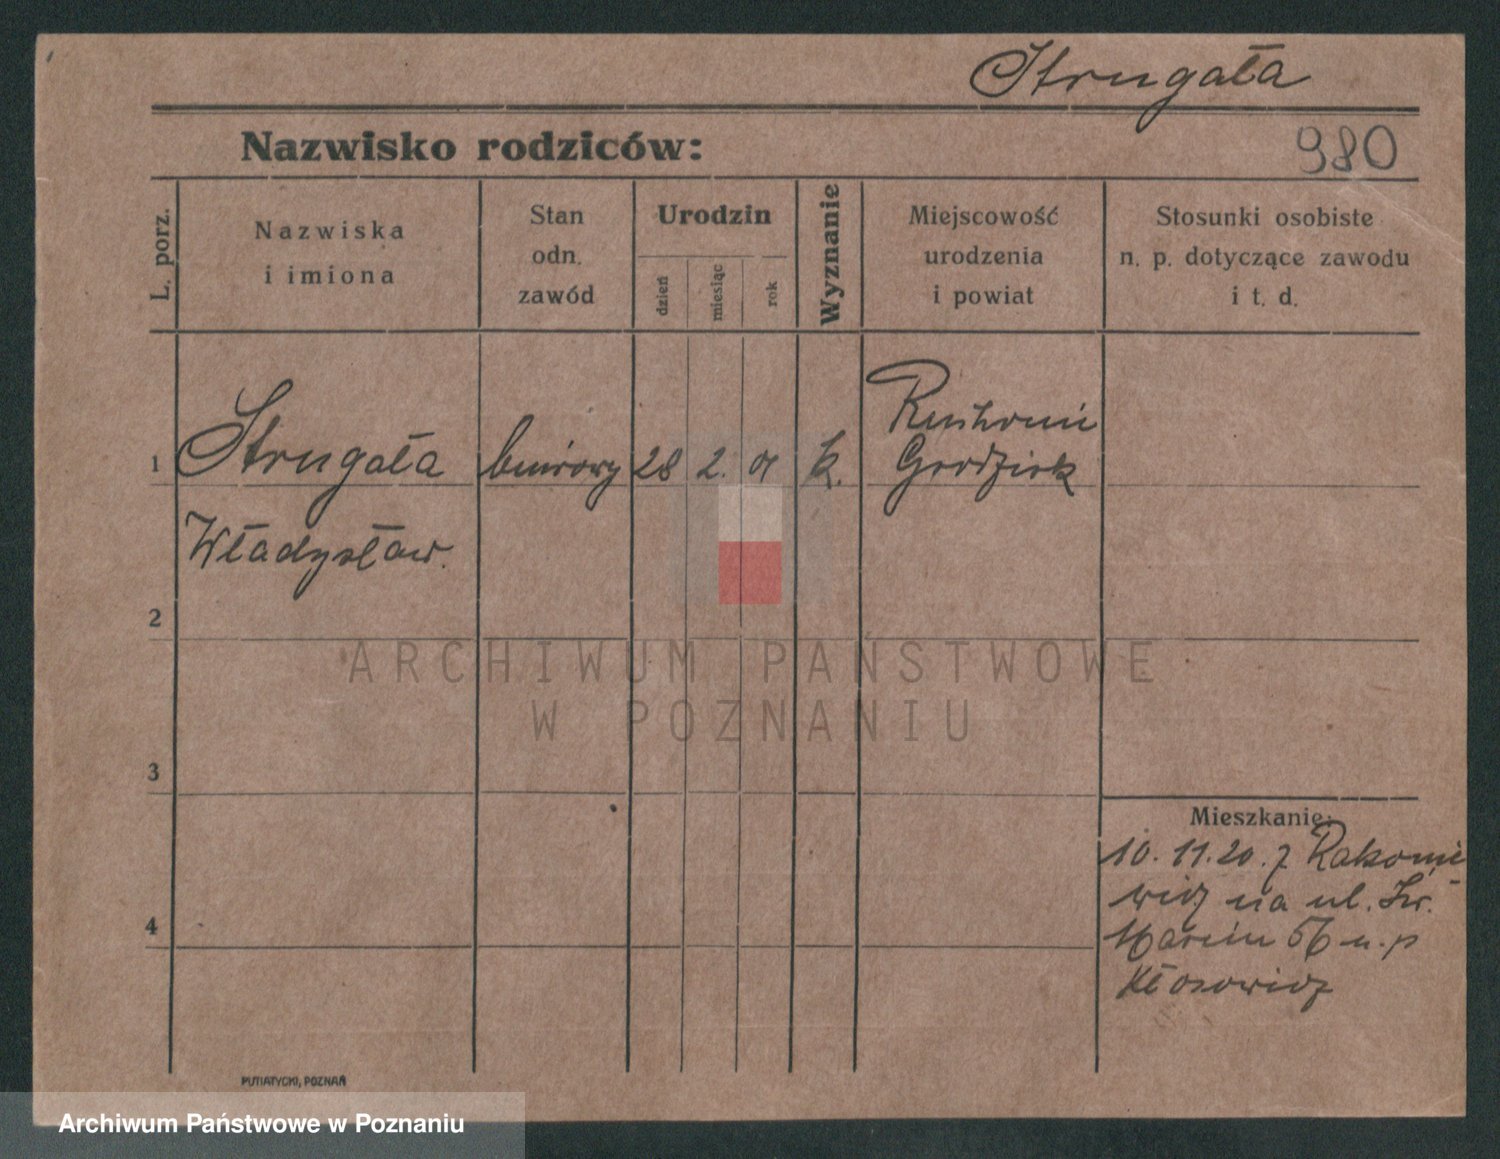 Strugała
Nazwisko rodziców:
980
L. porz.
Nazwiska
i imiona
Stan
odn.
zawód
Urodzin
dzień
miesiąc
rok
Wyznanie
Miejscowość
urodzenia
i powiat
Stosunki osobiste
n. p. dotyczące zawodu
i t. d.
1
Strugała
Władysław.
biurowy
28
2.
01
k.
Grodzisk
2
3
4
Mieszkanie:
10. 11. 20. z Rakonie
wicz na ul. Św.
Marcin 56 u. p
Kłosowicz
PUTIATYCKI, POZNAŃ
ARCHIWUM PAŃSTWOWE
W POZNANIU
Archiwum Państwowe w Poznaniu